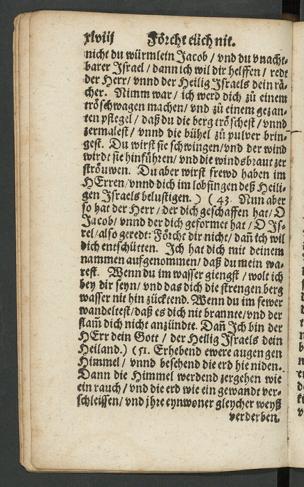 xlviij Förcht eüch nit.
nicht du würmlein Jacob / vnd du vnacht-
barer Jsrael / dann ich wil dir helffen / rede
der Herr / vnnd der Heilig Jsraels dein rä-
cher. Nimm war / ich werd dich zů einem
tröschwagen machen / vnd zů einem gezan-
ten pflegel / daß du die berg tröschest / vnnd
zermalest / vnnd die bühel zů pulver brin-
gest. Du wirst sie schwingen / vnd der wind
wirdt sie hinführen / vnd die windsbraut zer
ströuwen. Du aber wirst frewd haben im
HErren / vnnd dich im lobsingen deß Heili-
gen Jsraels belustigen.) (43. Nun aber
so hat der Herr / der dich geschaffen hat / O
Jacob / vnnd der dich geformet hat / O Js-
rel / also geredt: Förcht dir nicht / dañ ich wil
dich entschütten. Jch hat dich mit deinem
nammen aufgenommen / daß du mein wa-
rest. Wenn du im wasser giengst / wolt ich
bey dir seyn / vnd das dich die strengen berg
wasser nit hin zücktend. Wenn du im fewer
wandeltest / daß es dich nit brannte / vnd der
flam̃ dich nicht anzündte. Dañ Jch bin der
HErr dein Gott / der Heilig Jsraels dein
Heiland.) (51. Erhebend ewere augen gen
Himmel / vnnd besehend die erd hie niden.
Dann die Himmel werdend zergehen wie
ein rauch / vnd die erd wie ein gewandt ver-
schleissen / vnd jhre eynwoner gleycher weyß
verderben.